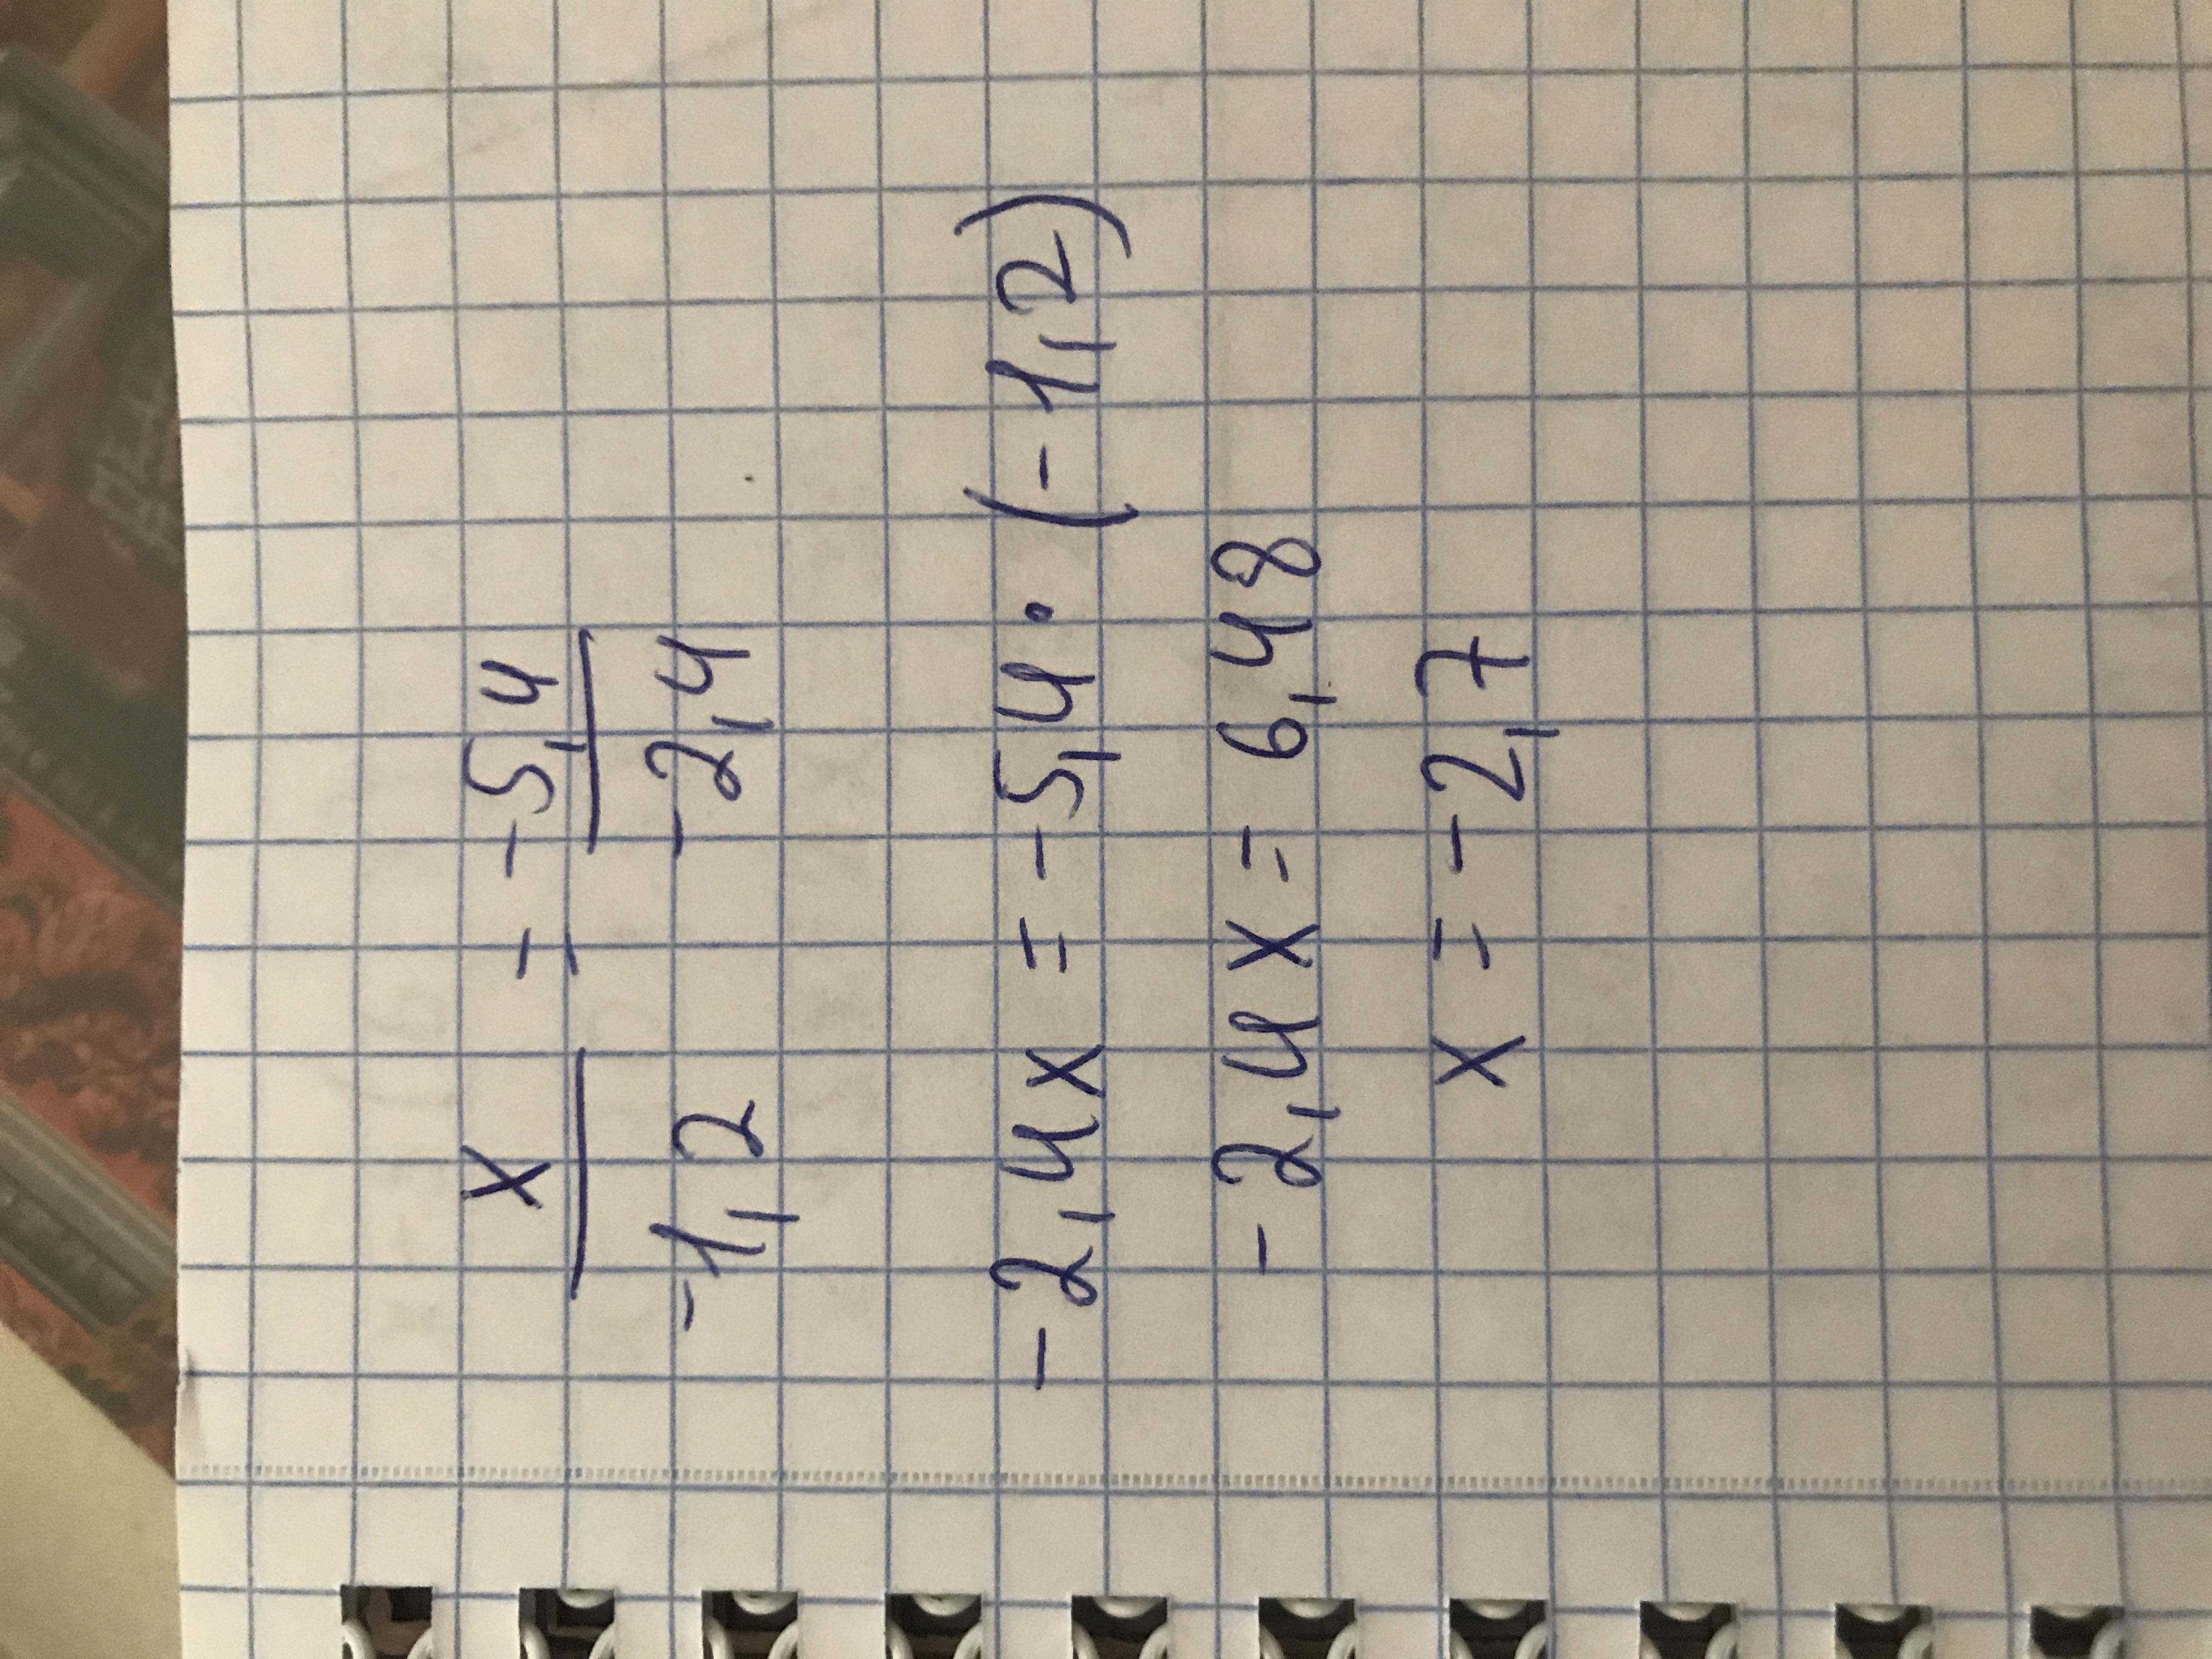 x/-1,2 = -5,4/-2,4
-2,4x = -5,4 · (-1,2)
-2,4x = 6,48
x = -2,7